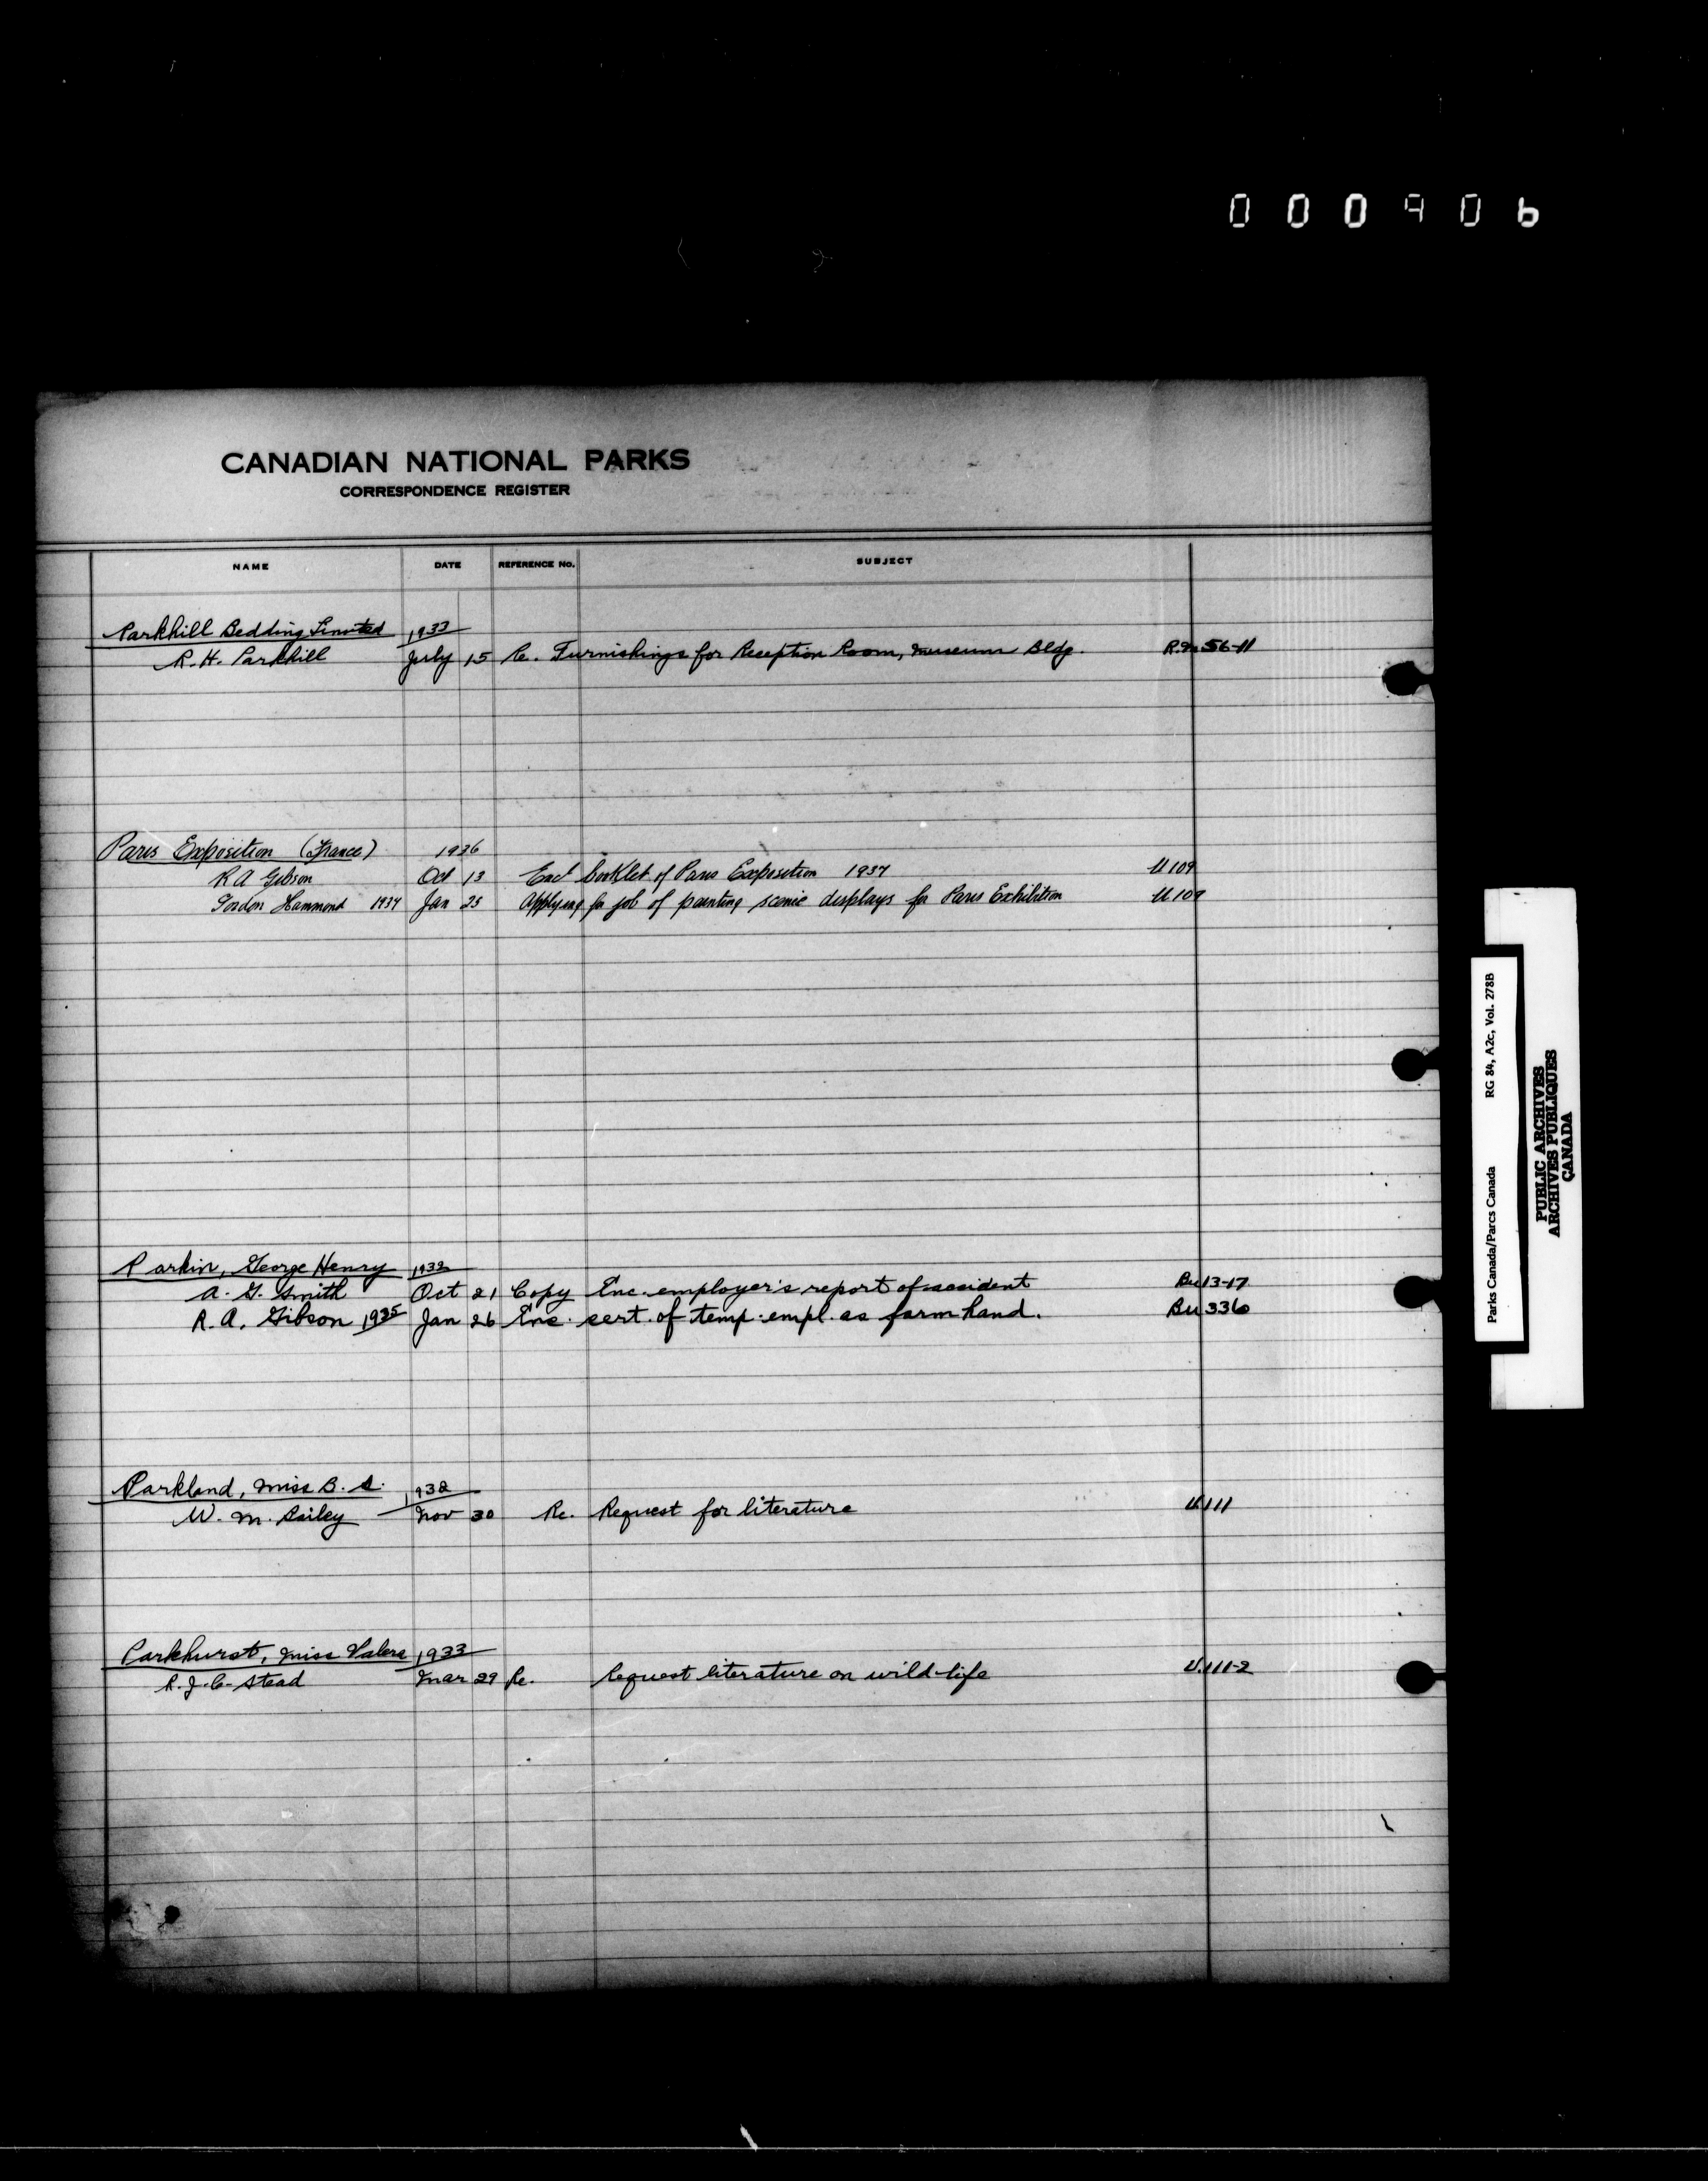 000906
CANADIAN NATIONAL PARKS
CORRESPONDENCE REGISTER
NAME DATE REFERENCE No. SUBJECT
Parkhill Bedding Limited 1933
R. H. Parkhill July 15 Re. Furnishings for Reception Room, Museum Bldg. R.M. 56-11
Paris Exposition (France) 1936
R A Gibson Oct 13 Encl booklet of Paris Exposition 1937 U 109
Gordon Hammond 1937 Jan 25 Applying for job of painting scenic displays for Paris Exhibition U 109
Parkin, George Henry 1932
A. G. Smith Oct 21 Copy Enc. employer's report of accident Bu 13-17
R. A. Gibson 1935 Jan 26 Enc. cert. of temp. empl. as farm hand. Bu 336
Parkland, Miss B. S. 1932
W. M. Bailey Nov 30 Re. Request for literature U.111
Parkhurst, Miss Valera 1933
R. J. C. Stead Mar 29 Re. Request literature on wild-life U.111-2
Parks Canada/Parcs Canada RG 84, A2c, Vol. 278B
PUBLIC ARCHIVES
ARCHIVES PUBLIQUES
CANADA